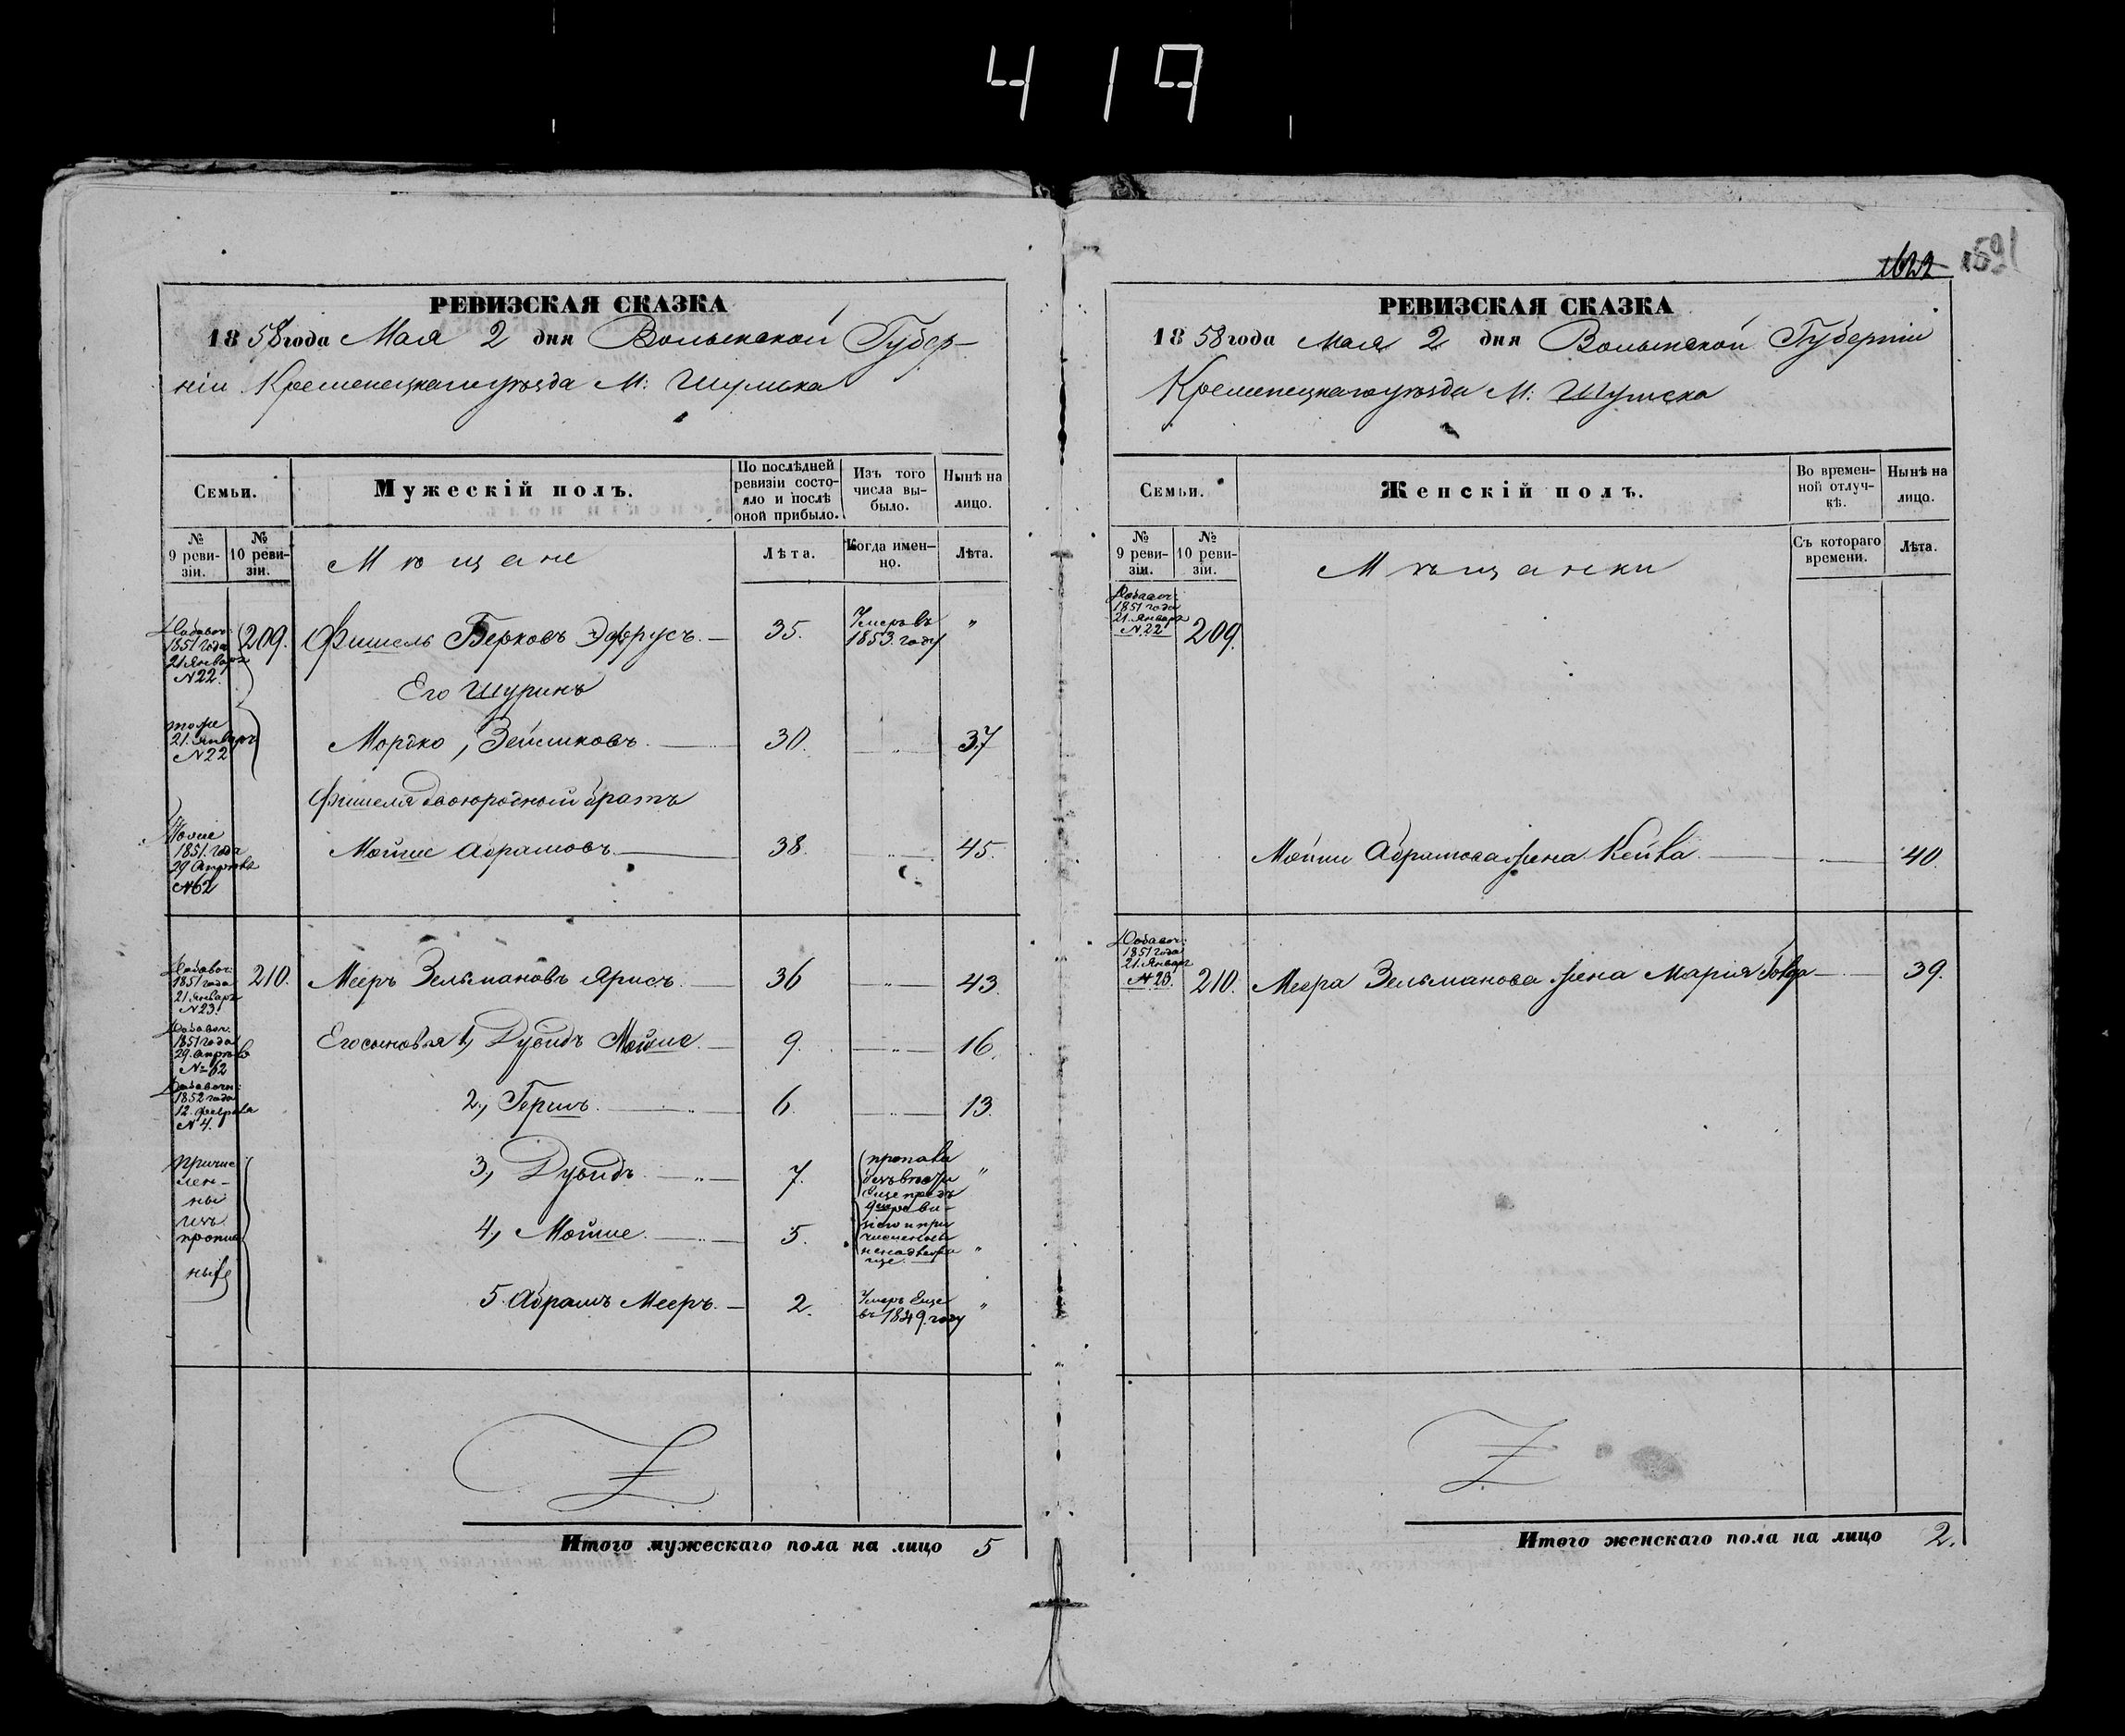 419
1622 1591
РЕВИЗСКАЯ СКАЗКА
1858 года Мая 2 дня Волынской Губер-
ніи Кременецкаго уѣзда М: Шумска
Семьи.
Мужескій полъ.
По послѣдней ревизіи состояло и послѣ оной прибыло.
Изъ того числа выбыло.
Нынѣ на лицо.
№ 9 ревизіи.
№ 10 ревизіи.
Мѣщане
Лѣта.
Когда именно.
Лѣта.
Добавоч: 1851 года 21 Января N 22. 209. Фишель Берковъ Эфрусъ. 35. Умеръ въ 1853. году "
Его Шуринъ
тоже 21. Января N 22 Мордко, Зейликовъ. 30. 37
Фишеля двоюродный братъ
1851. года 29 Апрѣля N 62 Мойше Абрамовъ 38. 45.
Добавоч: 1851 года 21 Января N 23. 210. Мееръ Зельмановъ Ярисъ. 36 43.
Добавоч: 1851 года 29. Апрѣля № 62 Его сыновья 1, Дувидъ Мойше. 9. 16.
Добавочн: 1852 года 12. Февраля N 4. 2., Гершъ. 6. 13.
причислены изъ 3, Дувидъ. 7. "
4., Мойше. 5. "
5. Абрамъ Мееръ. 2. Умеръ Еще въ 1849. году "
Итого мужескаго пола на лицо 5
РЕВИЗСКАЯ СКАЗКА
1858 года Мая 2 дня Волынской Губерніи
Кременецкаго уѣзда М: Шумска
Семьи.
Женскій полъ.
Во временной отлучкѣ.
Нынѣ на лицо.
№ 9 ревизіи.
№ 10 ревизіи.
Мѣщанки
Съ котораго времени.
Лѣта.
Добавоч: 1851 года 21. Января N. 22 209.
Мойши Абрамова жена Кейла. 40.
Добавоч: 1851 года 21. Января N. 23. 210. Меера Зельманова жена Марія 39.
Итого женскаго пола на лицо 2.